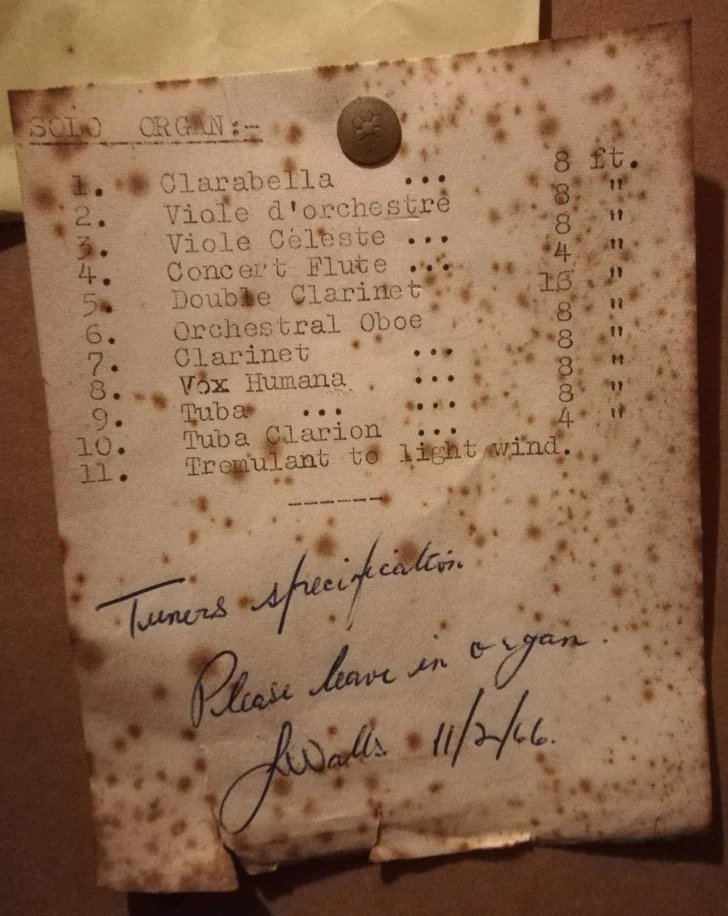 SOLO ORGAN:-
1. Clarabella ... 8 ft.
2. Viole d'orchestre 8 "
3. Viole Céleste ... 8 "
4. Concert Flute ... 4 "
5. Double Clarinet 16 "
6. Orchestral Oboe 8 "
7. Clarinet ... 8 "
8. Vox Humana ... 8 "
9. Tuba ... ... 8 "
10. Tuba Clarion ... 4 "
11. Tremulant to light wind.
------
Tuners specification
Please leave in organ.
JWalls 11/2/66.